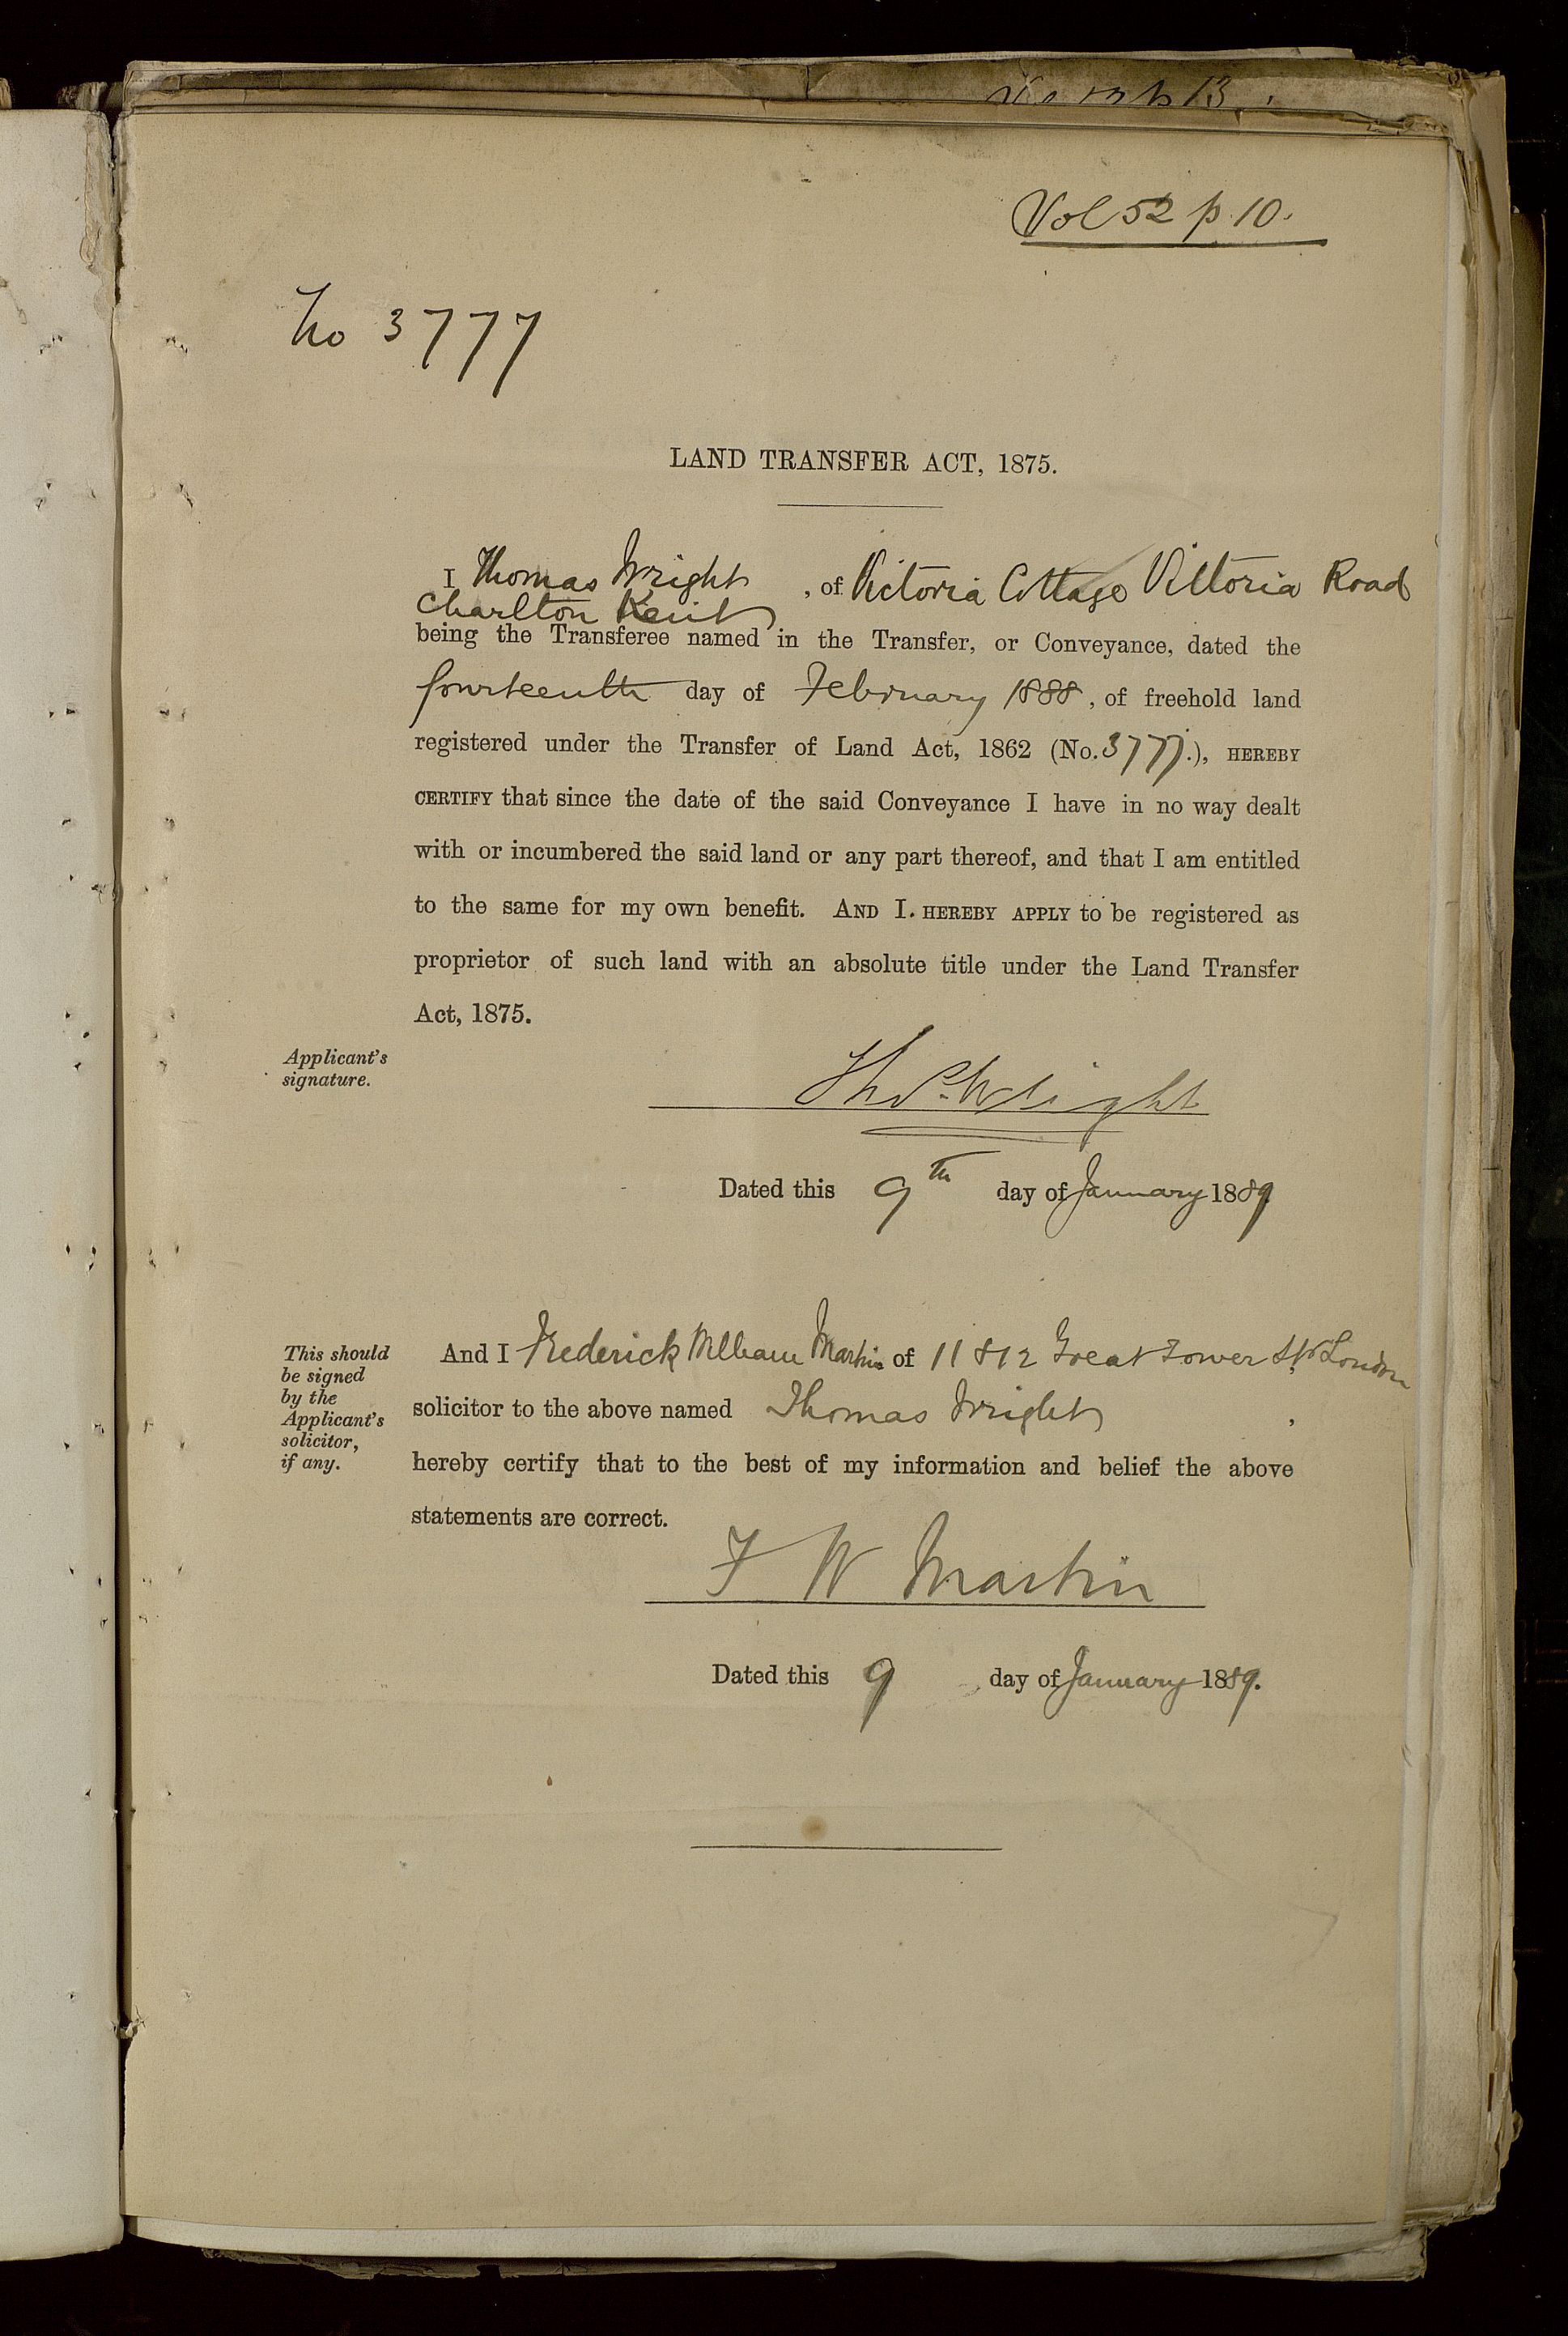 Vol 52 p. 10.
No 3777
LAND TRANSFER ACT, 1875.
I Thomas Wright, of Victoria Cottage Victoria Road
Charlton Kent
being the Transferee named in the Transfer, or Conveyance, dated the
fourteenth day of February 1888, of freehold land
registered under the Transfer of Land Act, 1862 (No. 3777.), HEREBY
CERTIFY that since the date of the said Conveyance I have in no way dealt
with or incumbered the said land or any part thereof, and that I am entitled
to the same for my own benefit. AND I HEREBY APPLY to be registered as
proprietor of such land with an absolute title under the Land Transfer
Act, 1875.
Applicant's
signature.
Thos. Wright
Dated this 9th day of January 1889
This should
be signed
by the
Applicant's
solicitor,
if any.
And I Frederick William Martin of 11 & 12 Great Tower St London
solicitor to the above named Thomas Wright,
hereby certify that to the best of my information and belief the above
statements are correct.
F W Martin
Dated this 9 day of January 1889.